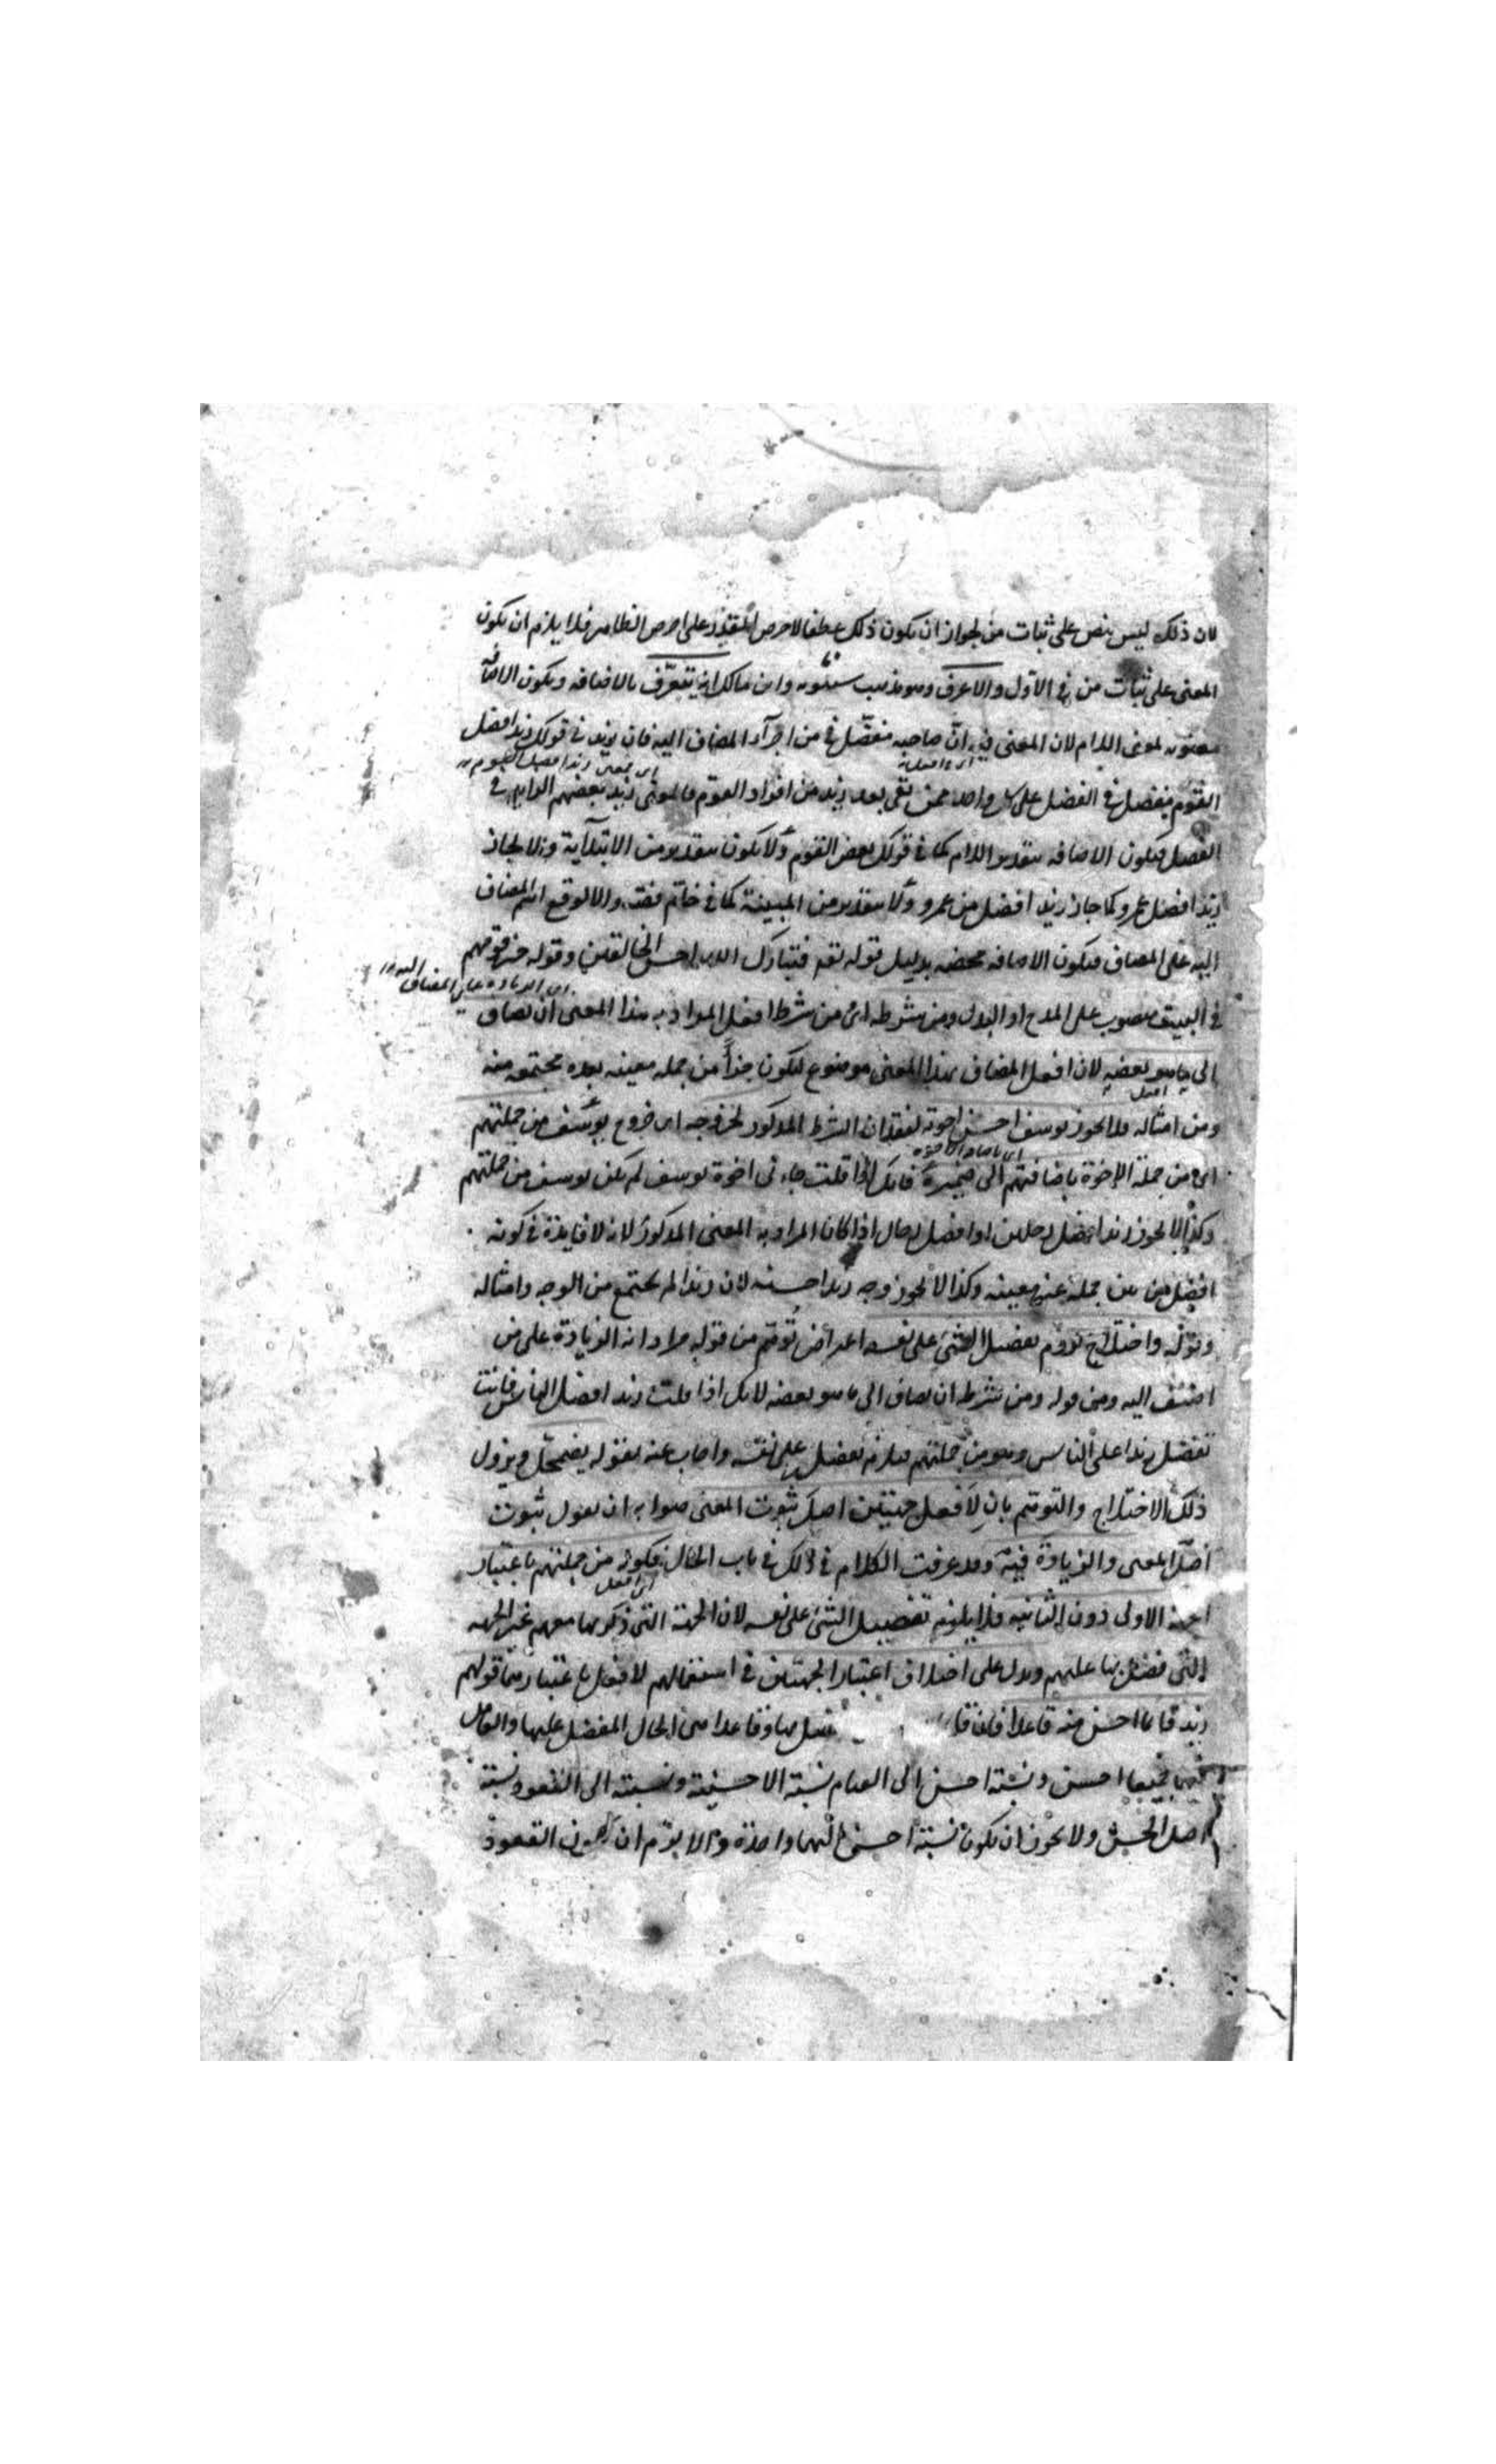 لان ذلك ليس بنص على ثبات من لجواز ان يكون ذلك عطفا لاحرص المقدر على احرص الظاهر فلا يلزم ان يكون
المعنى على ثبات من في الاول والاعرف وهو مذهب سيبويه وابن مالك انه يتعرف بالاضافة ويكون الاضافة
معنوية بمعنى اللام لان المعنى فيه ان صاحبه مفضل في من اجزاء المضاف اليه فان زيد في قولك زيد افضل
اى بمعنى زيد افضل القوم
القوم مفضل في الفضل على كل واحد ممن بقى بعد زيد من افراد القوم فالمعنى زيد بعضهم الزايد في
الفضل فيكون الاضافة بتقدير اللام كما في قولك بعض القوم ولا يكون بتقدير من الابتدآية والا لجاز
زيد افضل عمرو كما جاز زيد افضل من عمرو ولا بتقدير من المبينة كما في خاتم فضة والا لوقع اسم المضاف
اليه على المضاف فيكون الاضافة محضة بدليل قوله تعه فتبارك الله احسن الخالقين وقوله
اى الزيادة على المضاف اليه
في البيت منصوب على المدح او البدل ومن شرطه اى من شرط افعل المراد به هذا المعنى ان يضاف
الى ما هو بعضه لان افعل المضاف بهذا المعنى موضوع ليكون جزأ من جملة معينة بعده مجتمعة منه
افعل
ومن امثاله فلا يجوز يوسف احسن اخوته لفقدان الشرط المذكور لخروجه اى خروج يوسف من جملتهم
اى باضافة الاخوة
اى من جملة الاخوة باضافتهم الى ضميره فانك اذا قلت جاءنى اخوة يوسف لم يكن يوسف من جملتهم
وكذا لا يجوز زيد افضل رجلين او افضل رجال اذا كان المراد به المعنى المذكور لانه لا فايدة في كونه
افضل من بين جملة غير معينة وكذا لا يجوز وجه زيد احسنه لان زيدا لم يجتمع من الوجه وامثاله
وقوله واختلاج لزوم تفضيل الشئ على نفسه اعتراض توهم من قوله مراد انه الزيادة على من
اضيف اليه ومن قوله ومن شرطه ان يضاف الى ما هو بعضه لانك اذا قلت زيد افضل الناس فانت
تفضل زيدا على الناس وهو من جملتهم فيلزم تفضيل على نفسه واجاب عنه بقوله يضمحل ويزول
ذلك الاختلاج والتوهم بان لافعل جهتين اصل ثبوت المعنى صوابه ان يقول ثبوت
اصل المعنى والزيادة فيه وقد عرفت الكلام في ذلك في باب الحال فكونه من جملتهم باعتبار
اى افعل
الجهة الاولى دون الثانية فلا يلزم تفضيل الشئ على نفسه لان الجهة التى ذكر بها معهم غير الجهة
التى فضل بها عليهم ويدل على اختلاف اعتبار الجهتين في استعمالهم لافعل باعتبارهما قولهم
زيد قايما احسن منه قاعدا فان قا فضل بها وقاعدا من الحال المفضل عليها والعامل
فيهما جميعا احسن ونسبة احسن الى القيام نسبة الاحسنية ونسبته الى القعود نسبة
اصل الحسن ولا يجوز ان يكون نسبة احسن اليهما واحدة والا لزم ان يكون القعود